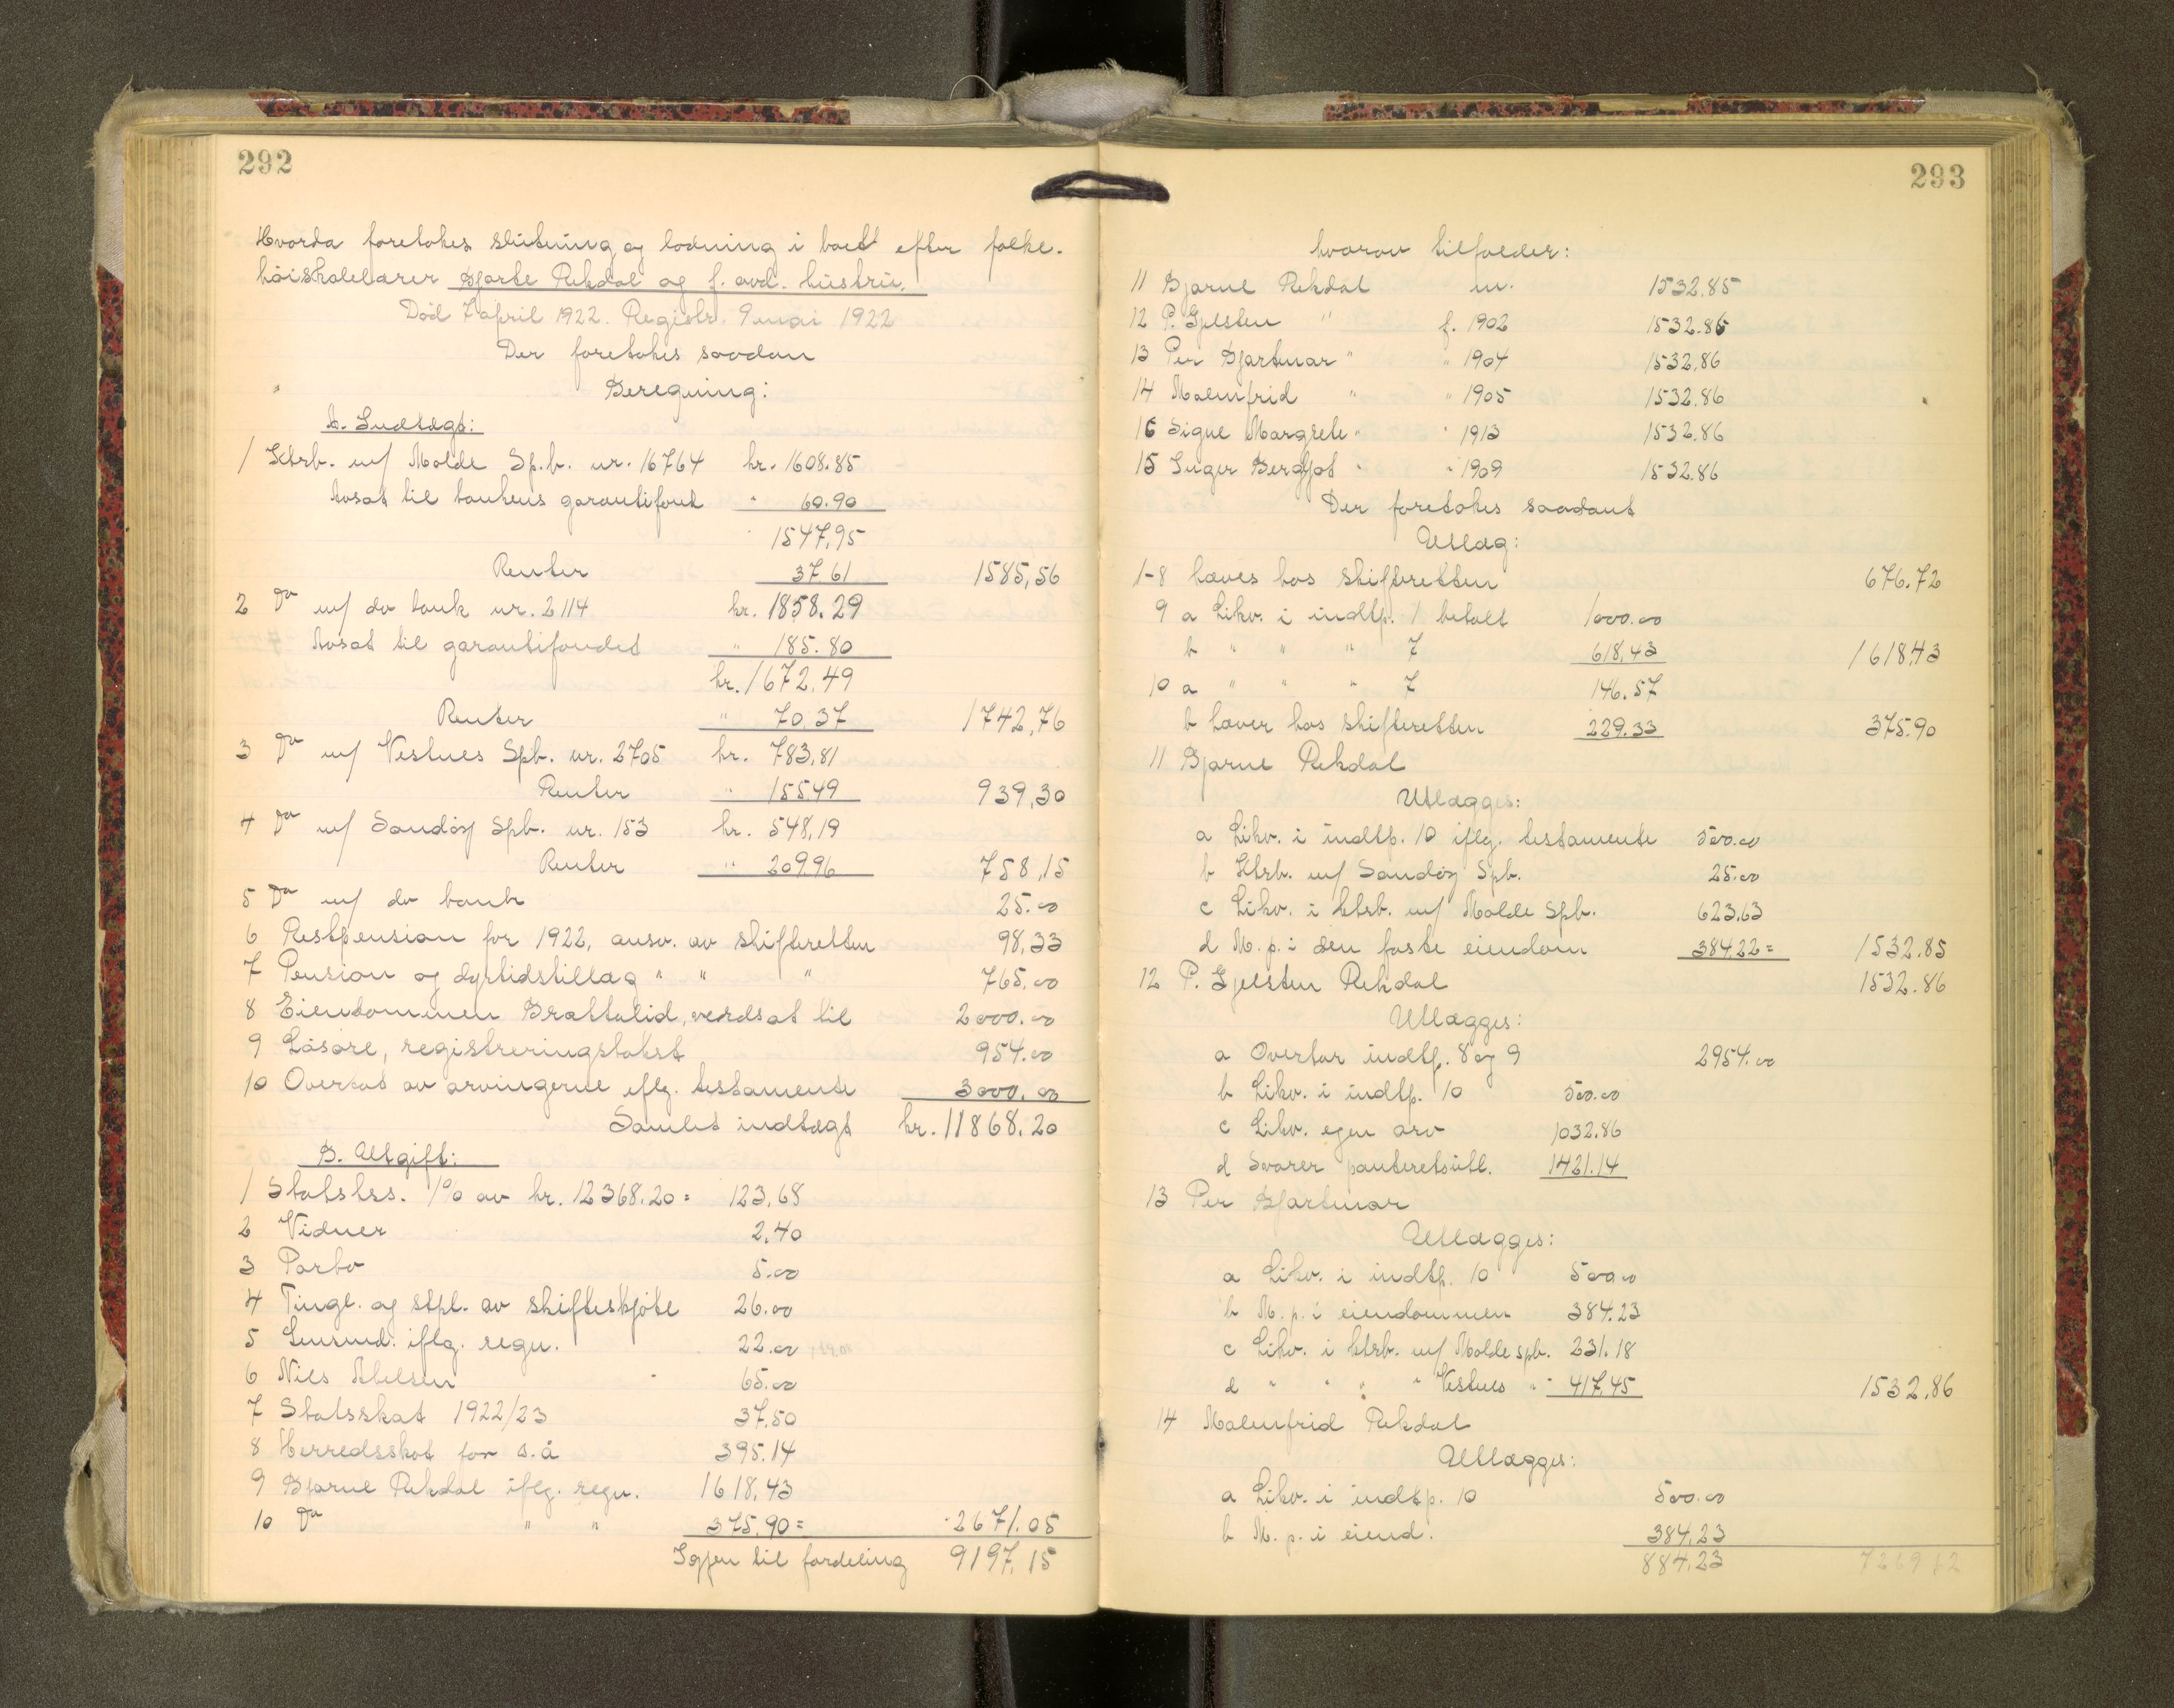 292
Hvorda foretokes slutning og lodning i boet efter folke-
høiskolelærer Bjarte Rekdal og f. avd. hustru.
Død 7 april 1922. Registr. 9 mai 1922
Der foretokes saadan
Beregning:
A. Indtægt:
1 Ktrb. m/ Molde Sp.b. nr. 16764 kr. 1608.85
Avsat til bankens garantifont " 60.90
1547,95
Renter 37 61 1585,56
2 Do m/ do bank nr. 2114 kr. 1858.29
Avsat til garantifondet " 185.80
kr. 1672,49
Renter " 70.37 1742,76
3 Do m/ Vestnes Spb. nr. 2705 kr. 783,81
Renter " 155.49 939,30
4 Do m/ Sandøy Spb. nr. 153 kr. 548,19
Renter " 209.96 758,15
5 Do m/ do bank 25.00
6 Restpension for 1922, ansv. av skifteretten 98,33
7 Pension og dyrtidstillæg " " " 765.00
8 Eiendommen Brattalid, verdsat til 2000.00
9 Løsøre, registreringstakst 954.00
10 Overtat av arvingerne iflg. testamente 3000.00
Samlet indtægt kr. 11868.20
B. Utgift:
1 Statskss. 1% av kr. 12368.20 = 123,68
2 Vidner 2,40
3 Porto 5.00
4 Tingl. og stpl. av skifteskjøte 26.00
5 Lensmd. iflg. regn. 22.00
6 Nils Abelsen 65.00
7 Statsskat 1922/23 37,50
8 Herredsskat for s.å 395.14
9 Bjarne Rekdal iflg. regn. 1618,43
10 Do " " 375,90 = 2671.05
Igjen til fordeling 9197,15
293
hvorav tilfalder:
11 Bjarne Rekdal m. 1532.85
12 P. Gjelsten " f. 1902 1532.86
13 Per Bjartmar " " 1904 1532,86
14 Malmfrid " " 1905 1532.86
16 Signe Margrete " " 1913 1532.86
15 Inger Bergljot " " 1909 1532.86
Der foretokes saadant
Utlæg:
1-8 hæves hos skifteretten 676.72
9 a Likv. i indtp. 1 betalt 1000.00
b " " " 7 618,43 1618,43
10 a " " " 7 146.57
b hæver hos skifteretten 229.33 375.90
11 Bjarne Rekdal
Utlægges:
a Likv. i indtp. 10 iflg. testamente 500.00
b Ktrb. m/ Sandøy Spb. 25.00
c Likv. i ktrb. m/ Molde Spb. 623,63
d M. p. i den faste eiendom 384.22 = 1532.85
12 P. Gjelsten Rekdal 1532.86
Utlægges:
a Overtar indtp. 8 og 9 2954.00
b Likv. i indtp. 10 500.00
c Likv. egen arv 1032.86
d Svarer panteretsutl. 1421.14
13 Per Bjartmar
Utlægges:
a Likv. i indtp. 10 500.00
b M. p. i eiendommen 384.23
c Likv. i ktrb. m/ Molde spb. 231.18
d " " " " Vestnes " 417.45 1532,86
14 Malmfrid Rekdal
Utlægges:
a Likv. i indtp. 10 500.00
b M. p. i eiend. 384,23
884,23 7269 62